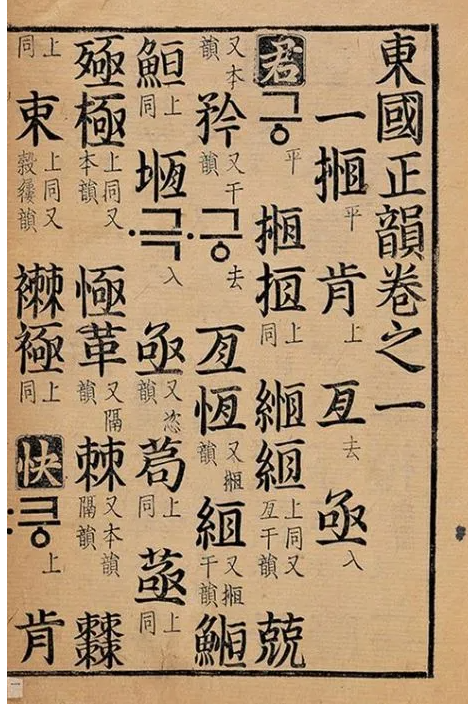 東國正韻卷之一
一揯平肯上亙去亟入
君긍平揯搄上同緪絚上同又亙干韻兢
又本韻矜又干韻·긍去亙恆又揯韻絚又揯干韻䱭
䱍上同堩·극入亟又恣韻茍上同上同
殛極上同又本韻恆革又隔韻棘又本韻隔韻
上同朿上同又韻襋上同快:킁上肯